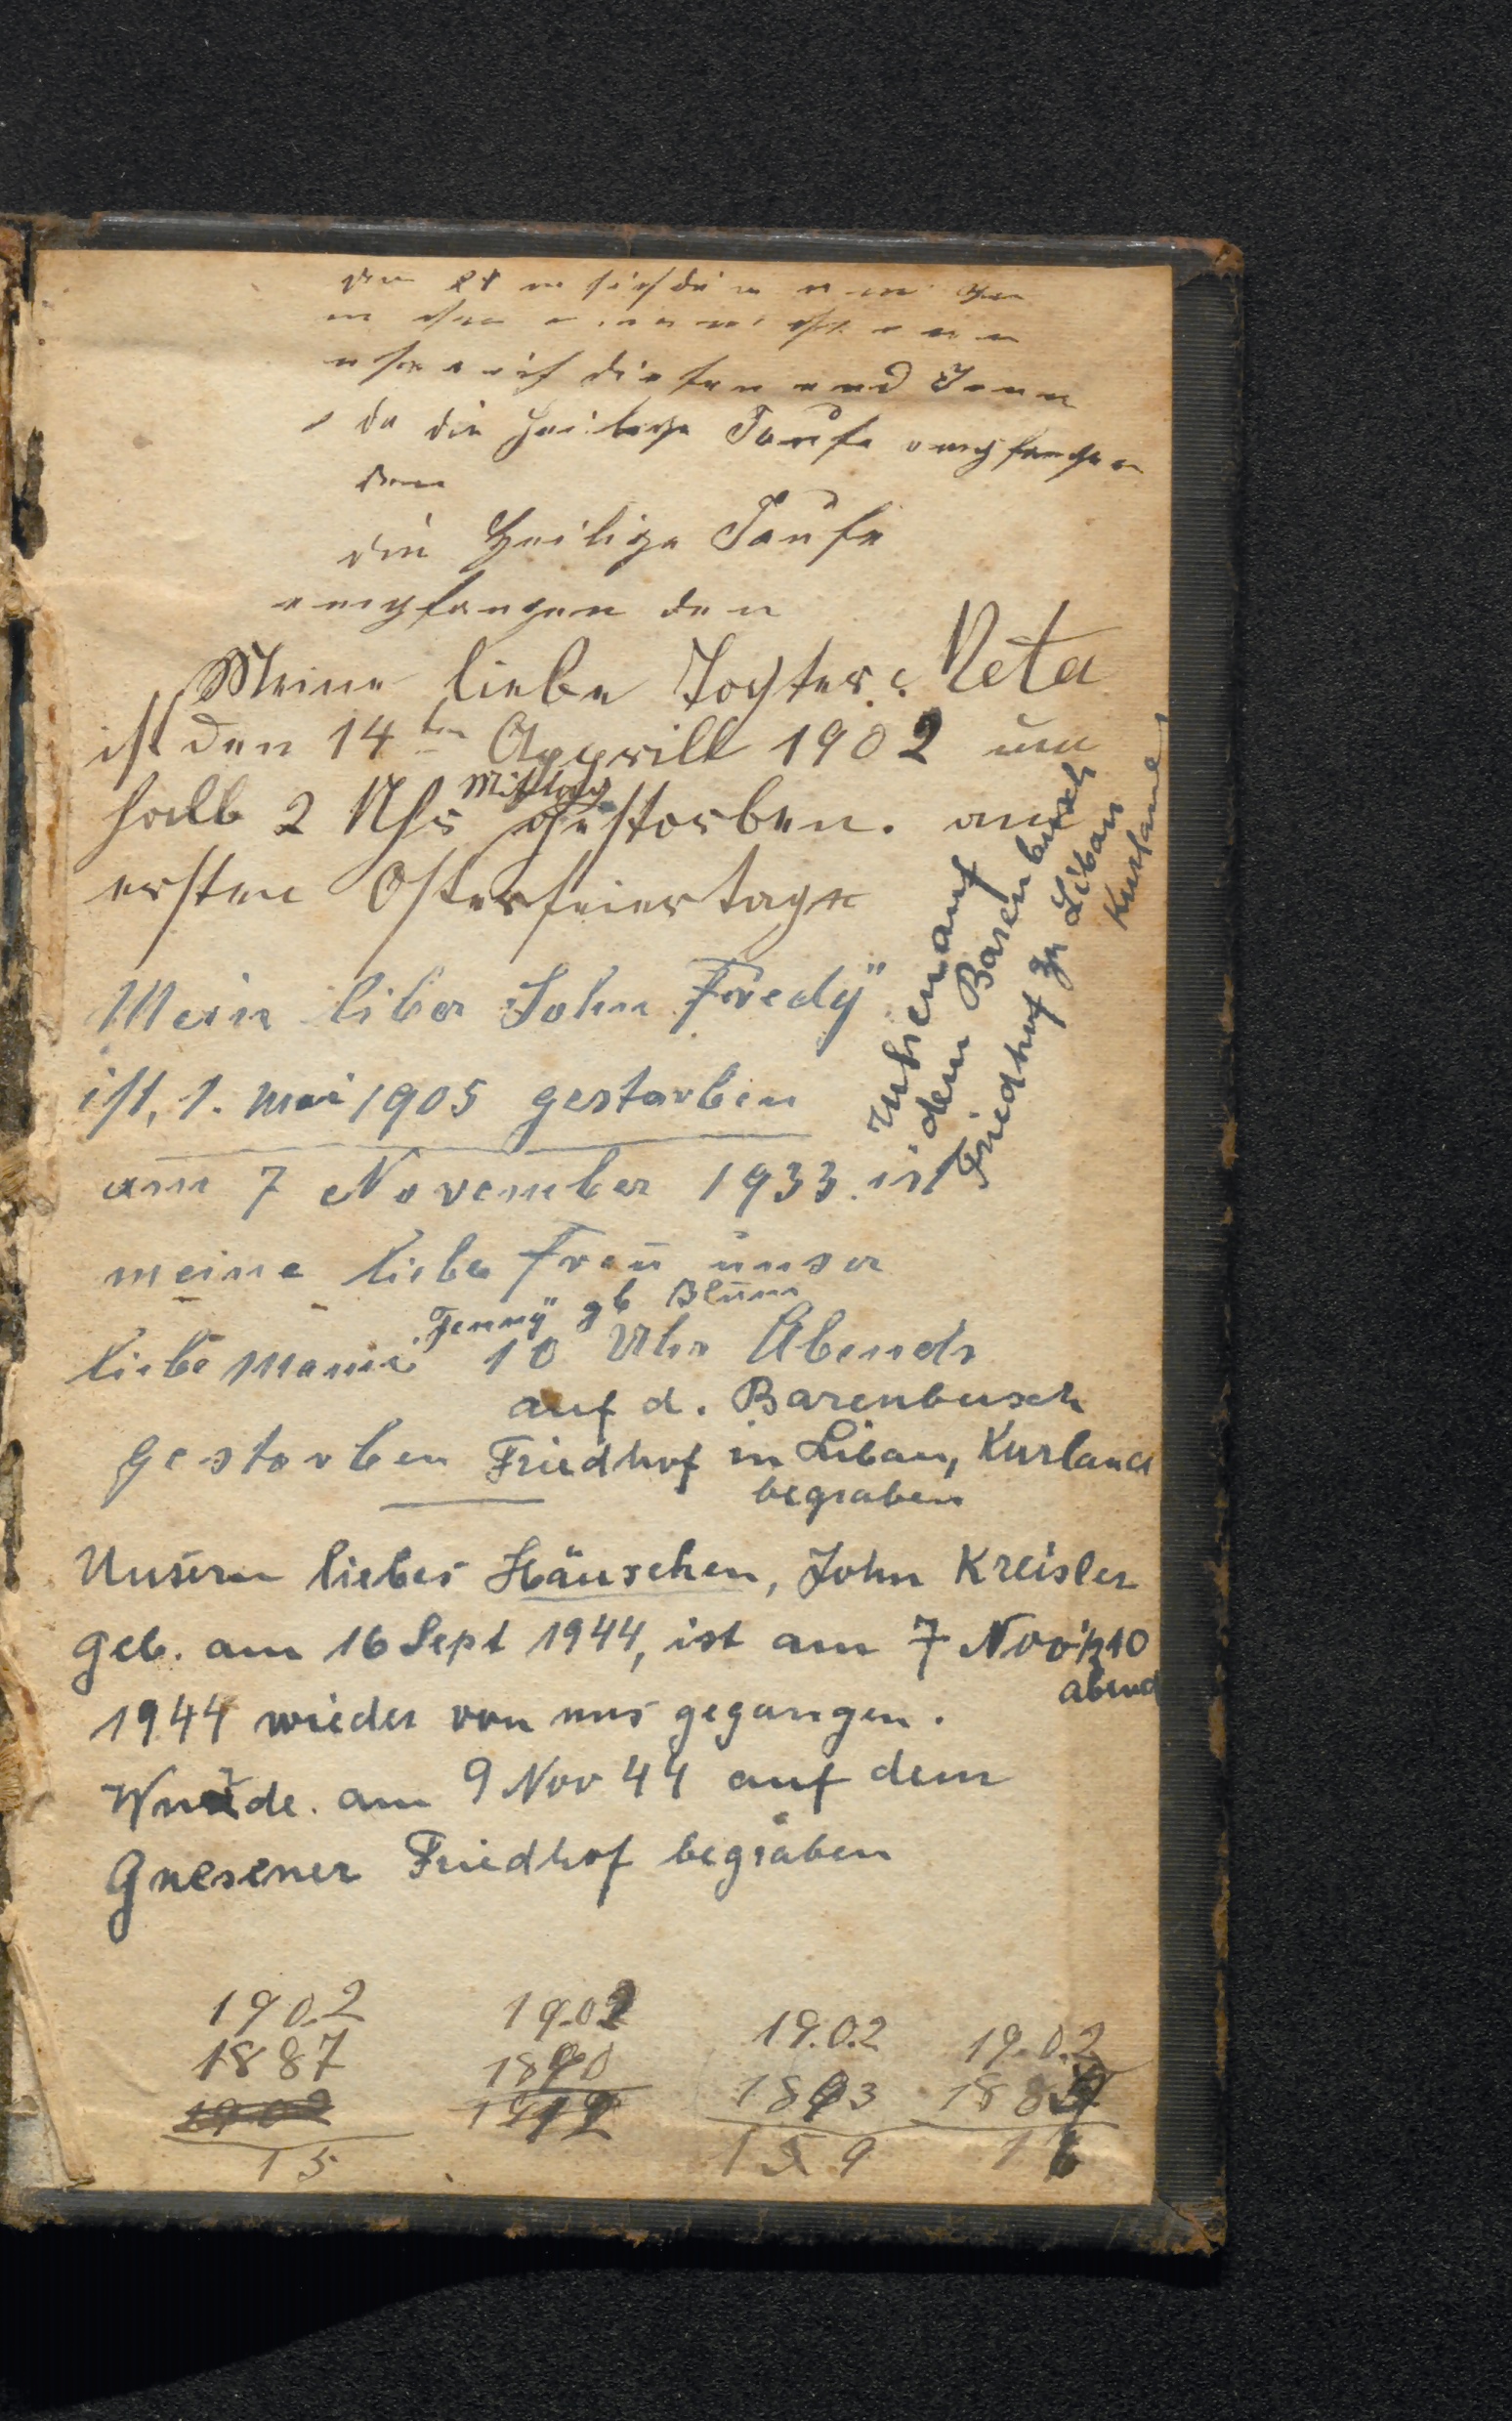 die Heilige Taufe empfangen
den
die Heilige Taufe
empfangen den
Meine liebe Togter: Meta
ist den 14ten Apprill 1902 um
halb 2 Uhr Mittag gestorben. am
ersten Osterfeiertage
Mein liber Sohn Fredÿ
ist, 1. mai 1905 gestorben
ruhen auf
dem Barenbusch
Friedhof zu Libau
Kurland
am 7 November 1933. ist
meine liebe Frau unser
Jennÿ gb Blum
liebe Mami 10 Uhr Abends
auf d. Barenbusch
gestorben Friedhof in Libau, Kurland
begraben
Unsern liebes Häuschen, John Kreisler
geb. am 16 Sept 1944, ist am 7 Nov ½10
abend
1944 wieder von uns gegangen.
Wurde. am 9 Nov 44 auf dem
Gnesener Friedhof begraben
1902 1902 19.0.2 19.0.2
1887 1890 1893
15 159 16